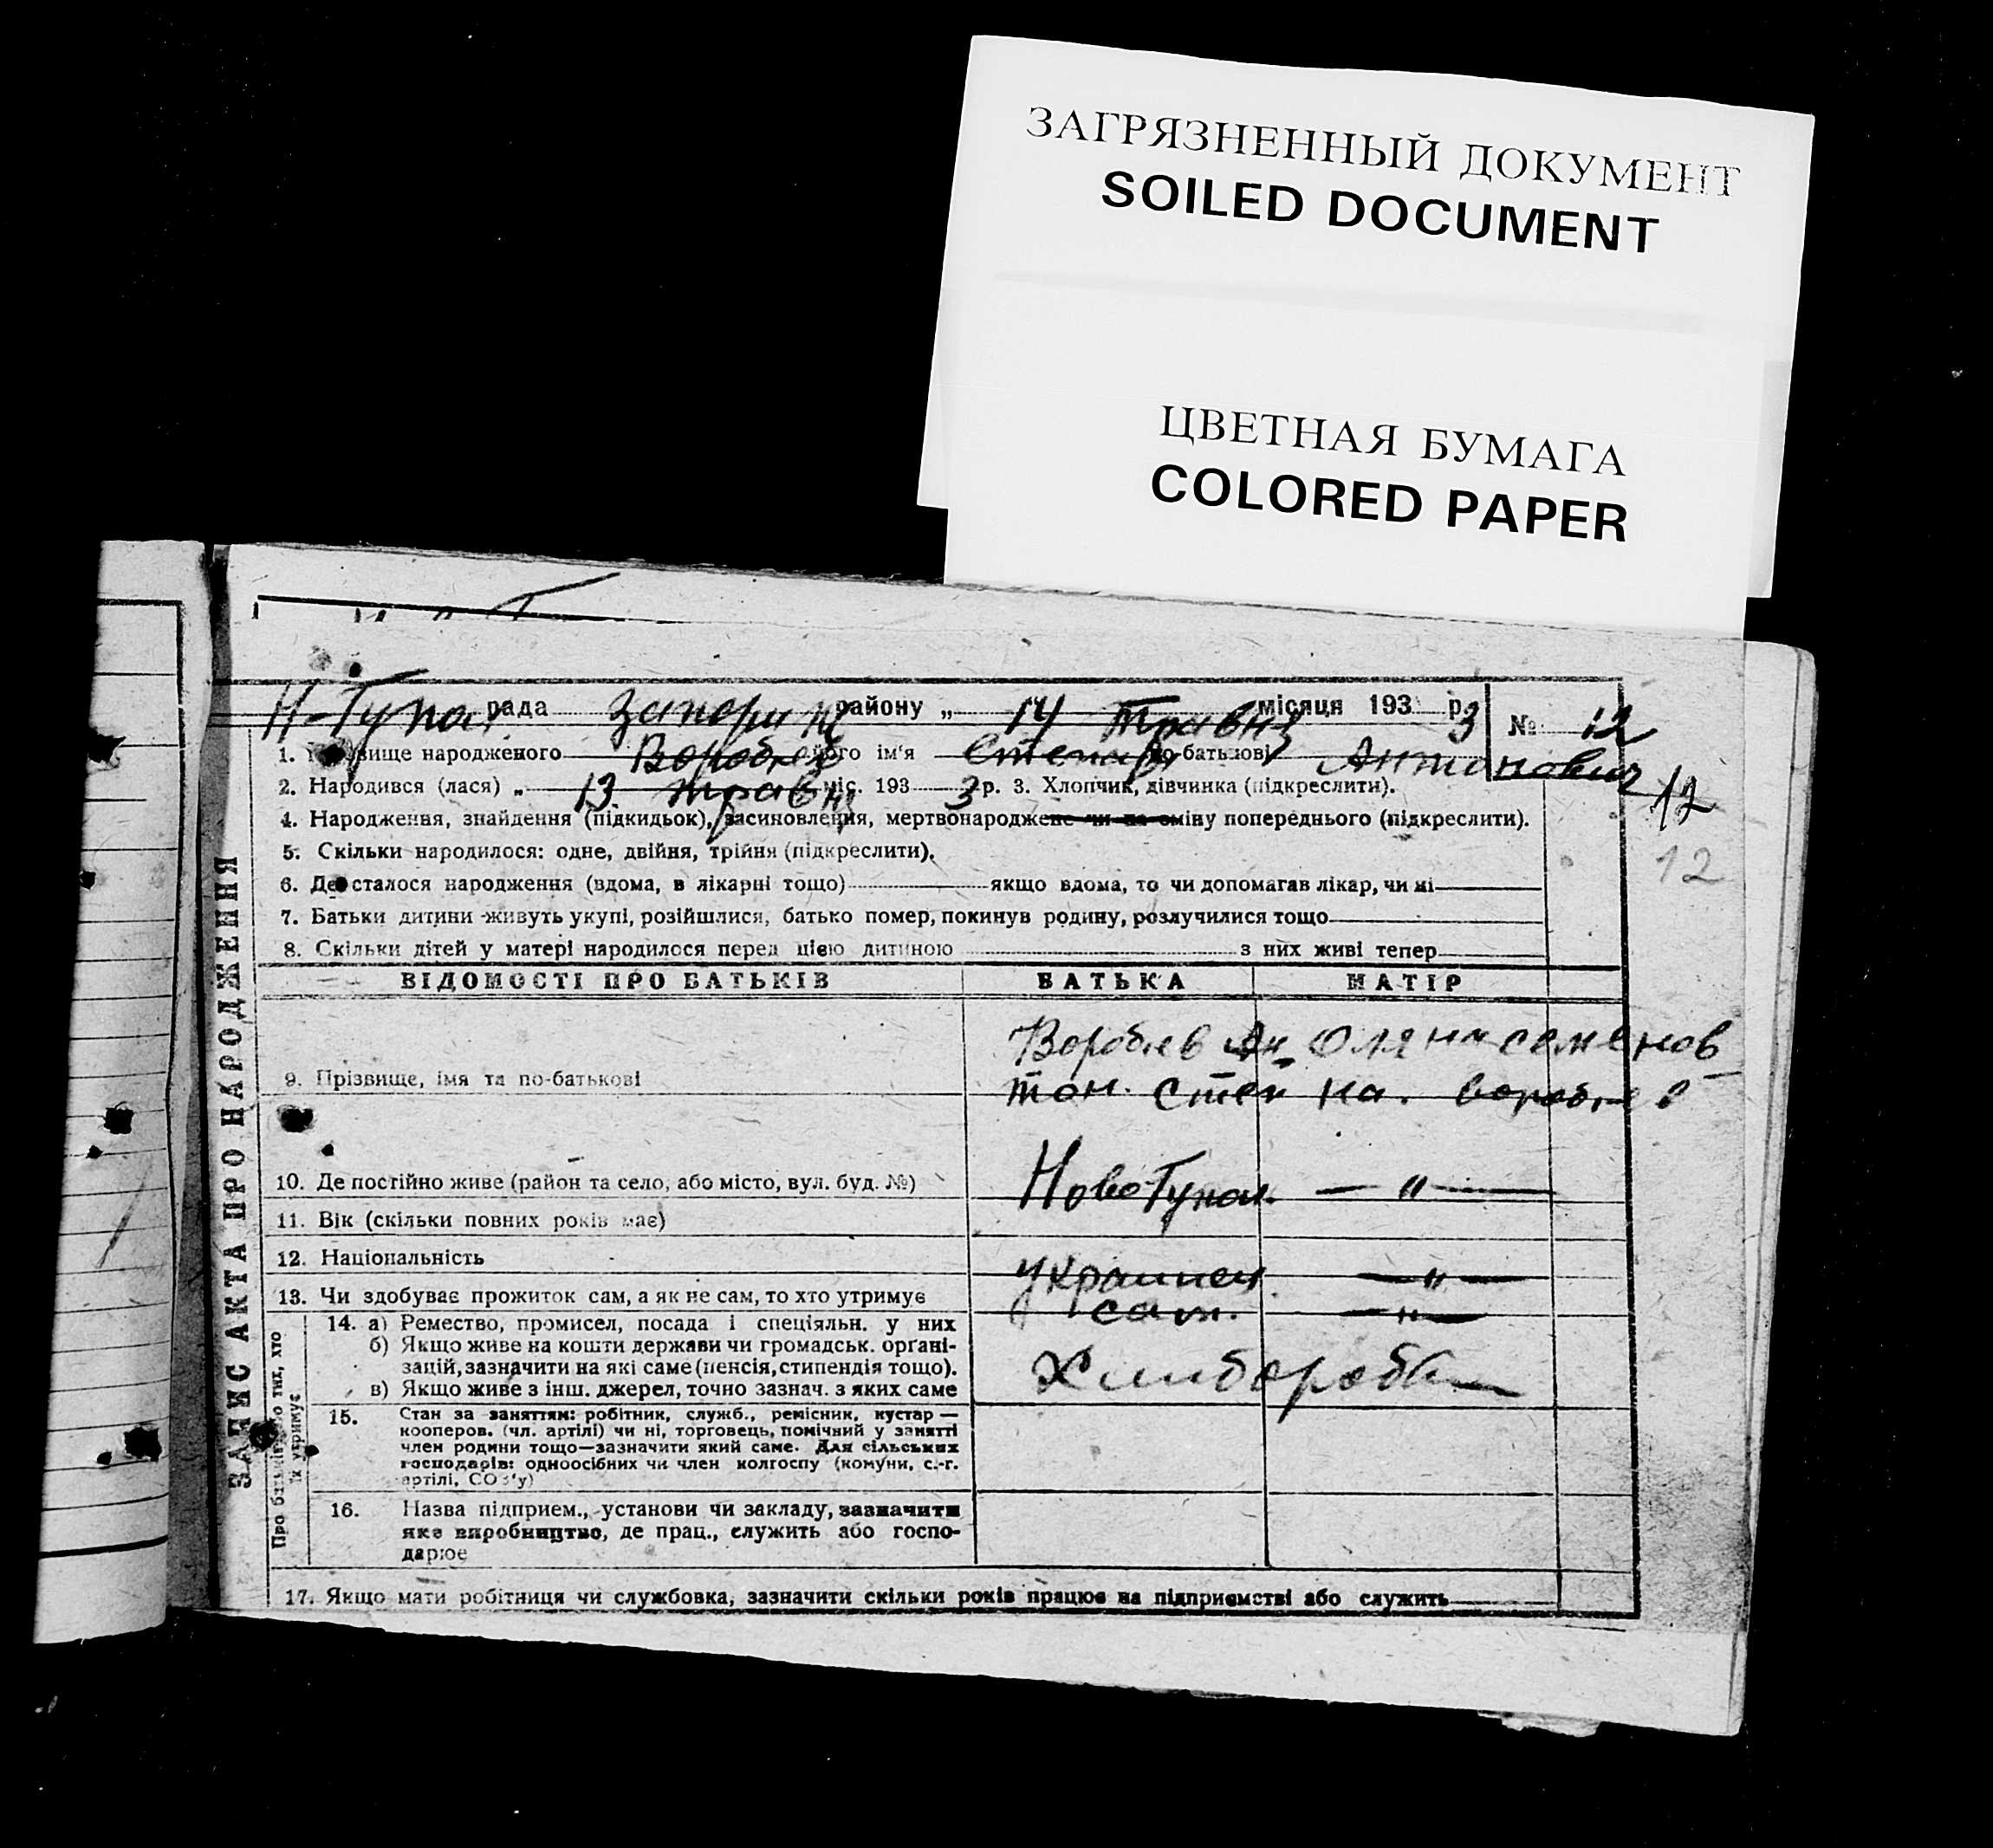 ЗАГРЯЗНЕННЫЙ ДОКУМЕНТ
SOILED DOCUMENT
ЦВЕТНАЯ БУМАГА
COLORED PAPER
рада району „ 14 Травня місяця 193 3 р. № 12
1. народженого Воробьев його ім'я Степан по батькові Антонович
2. Народився (лася) „ 13 травня міс. 193 3 р. 3. Хлопчик, дівчинка (підкреслити).
12
4. Народження, знайдення (підкидьок), засиновлення, мертвонароджене чи на зміну попереднього (підкреслити).
5. Скільки народилося: одне, двійня, трійня (підкреслити).
12
6. Де сталося народження (вдома, в лікарні тощо) якщо вдома, то чи допомагав лікар, чи ні
7. Батьки дитини живуть укупі, розійшлися, батько помер, покинув родину, розлучилися тощо
8. Скільки дітей у матері народилося перед цією дитиною з них живі тепер
ЗАПИС АКТА ПРО НАРОДЖЕННЯ
ВІДОМОСТІ ПРО БАТЬКІВ БАТЬКА МАТІР
Воробьев Ан Оляна семенов
9. Прізвище, імя та по-батькові тон. Степ на.
10. Де постійно живе (район та село, або місто, вул. буд. №) — " —
11. Вік (скільки повних років має)
12. Національність украинец — " —
13. Чи здобуває прожиток сам, а як не сам, то хто утримує сам. — " —
Про батьків або тих, хто
їх утримує
14. а) Ремество, промисел, посада і спеціяльн. у них
б) Якщо живе на кошти держави чи громадськ. орґані-
зацій, зазначити на які саме (пенсія, стипендія тощо).
в) Якщо живе з інш. джерел, точно зазнач. з яких саме
15. Стан за заняттям: робітник, служб., ремісник, кустар —
кооперов. (чл. артілі) чи ні, торговець, помічний у занятті
член родини тощо—зазначити який саме. Для сільських
господарів: одноосібних чи член колгоспу (комуни, с.-г.
артілі, СОЗ'у)
16. Назва підприєм., установи чи закладу, зазначити
яке виробництво, де прац., служить або госпо-
дарює
17. Якщо мати робітниця чи службовка, зазначити скільки років працює на підприємстві або служить